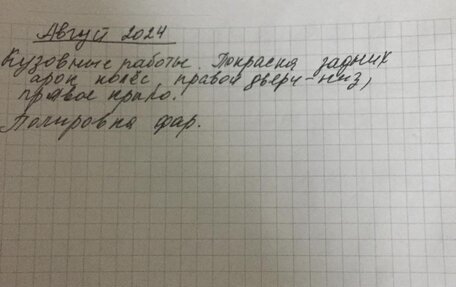 Август 2024
Кузовные работы. Покраска задних
арок колёс, правой двери-низ,
правое крыло.
Полировка фар.